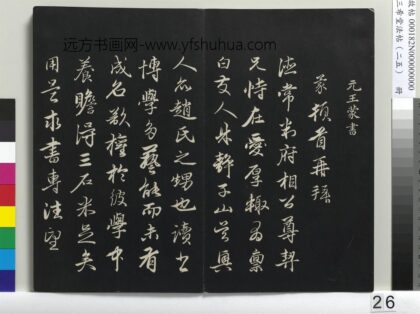 远方书画网-www.yfshuhua.com
故帖 000182N000000000
三希堂法帖(二五) 册
元王蒙書
蒙頓首再拜
德常判府相公尊契
兄恃在愛厚輒爲稟
白友人
人乃趙氏之甥也讀書
博學多藝能而未有
成名欲權於彼學中
養贍得三石米足矣
用是求書專注望
26